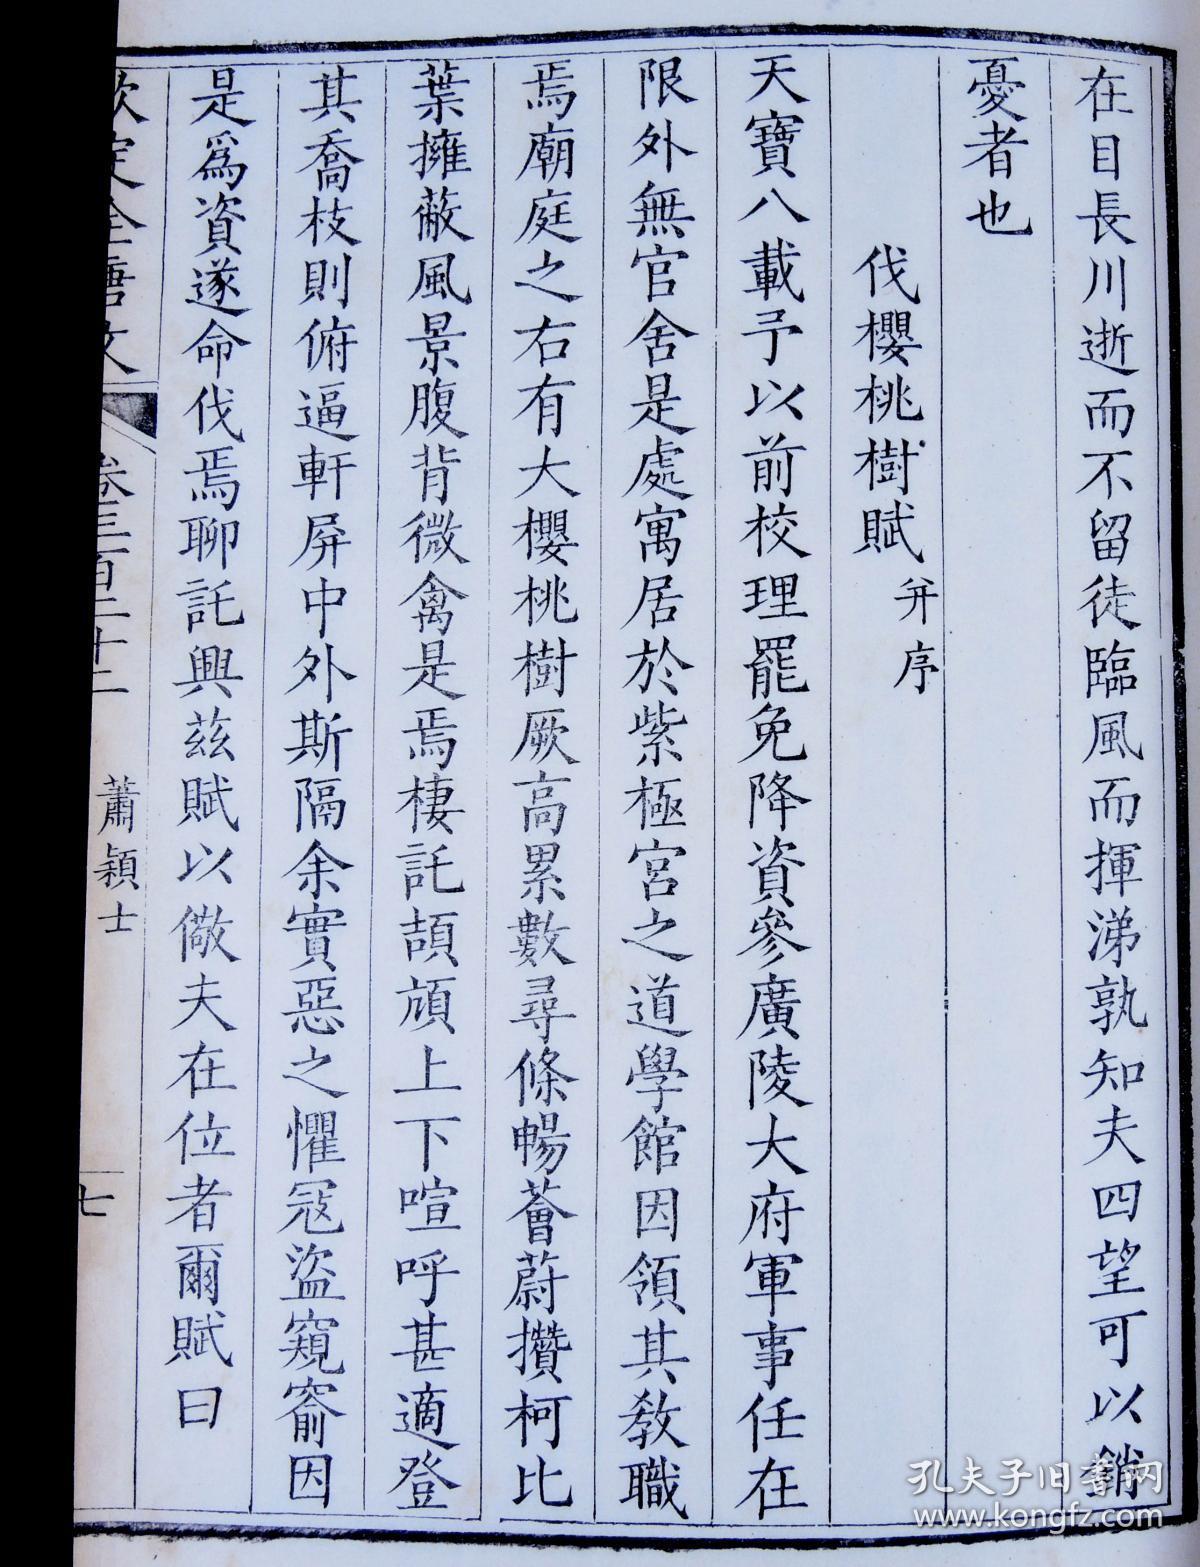 在目長川逝而不留徒臨風而揮涕孰知夫四望可以銷
憂者也
伐櫻桃樹賦 并序
天寶八載予以前校理罷免降資參廣陵大府軍事任在
限外無官舍是處寓居於紫極宮之道學館因領其教職
焉廟庭之右有大櫻桃樹厥高累數尋條暢薈蔚攢柯比
葉擁蔽風景腹背微禽是焉棲託頡頏上下喧呼甚適登
其喬枝則俯逼軒屏中外斯隔余實惡之懼寇盜窺窬因
是為資遂命伐焉聊託興茲賦以儆夫在位者爾賦曰
欽定全唐文 卷三百二十二 蕭穎士 七
孔夫子旧书网
www.kongfz.com